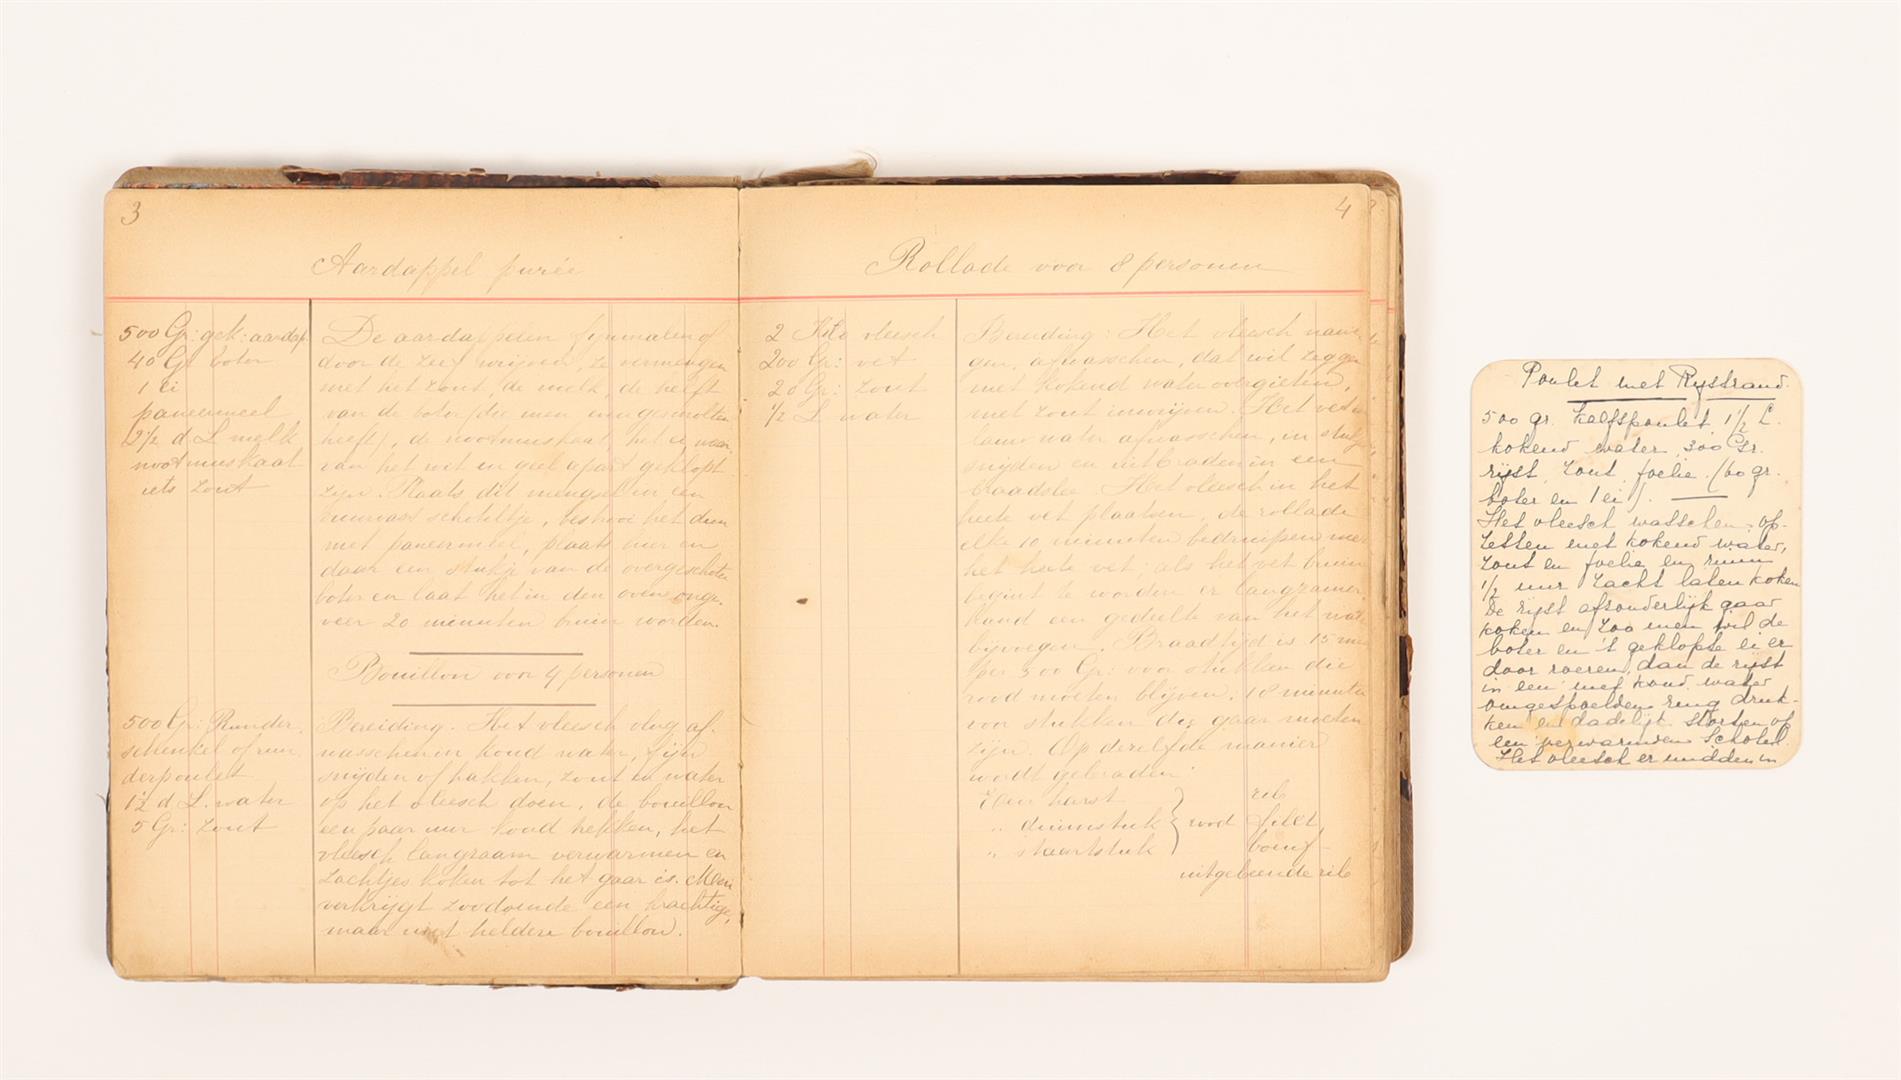 3
Aardappel purée
500 Gr: gek: aardap.
40 Gr boter
1 ei
paneermeel
2 1/2 d L melk
nootmuskaat
iets zout
De aardappelen fijnmalen of
door de zeef wrijven, ze vermengen
met het zout, de melk, de helft
van de boter (die men men gesmolten
heeft), de nootmuskaat, het ei waar
van het wit en geel apart geklopt
zijn. Plaats dit mengsel in een
vuurvast schoteltje, bestrooi het dun
met paneermeel, plaats hier en
daar een stukje van de overgeschoten
boter en laat het in den oven onge-
veer 20 minuten bruin worden.
Bouillon voor 4 personen
500 Gr: Runder
schenkel of run
derpoulet
1 1/2 d L. water
5 Gr: zout
Bereiding. Het vleesch vlug af-
wasschen in koud water, fijn
snijden of hakken, zout en water
op het vleesch doen, de bouillon
een paar uur koud trekken, het
vleesch langzaam verwarmen en
zachtjes koken tot het gaar is. Men
verkrijgt zoodoende een krachtige,
maar niet heldere bouillon.
4
Rollade voor 8 personen
2 Kilo vleesch
200 Gr: vet
20 Gr: zout
1/2 L water
Bereiding: Het vleesch
afwasschen, dat wil zeggen
met kokend water overgieten,
met zout inwrijven. Het vet in
lauw water afwasschen, in stukjes
snijden en uitbraden in een
braadslee. Het vleesch in het
heete vet plaatsen, de rollade
elke 10 minuten bedruipen met
het heete vet; als het vet bruin
begint te worden er langzamer
hand een gedeelte van het wat
bijvoegen. Braadtijd is 15 min
per 500 Gr: voor stukken die
rood moeten blijven. 18 minuten
voor stukken die gaar moeten
zijn. Op dezelfde manier
wordt gebraden:
Een harst } rood rib
" duimstuk filet
" staartstuk boeuf
uitgebeende rib
Poulet met Rystrand.
500 gr. kalfspoulet, 1 1/2 L.
kokend water, 300 Gr.
rijst, zout, foelie. (60 gr.
boter en 1 ei).
Het vleesch wasschen, op-
zetten met kokend water,
zout en foelie en ruim
1/2 uur zacht laten koken
De rijst afzonderlijk gaar
koken en zoo men wil de
boter en 't geklopte ei er
door roeren, dan de rijst
in een met koud water
omgespoelden ring druk-
ken en dadelijk storten op
een verwarmden schotel.
Het vleesch er midden in